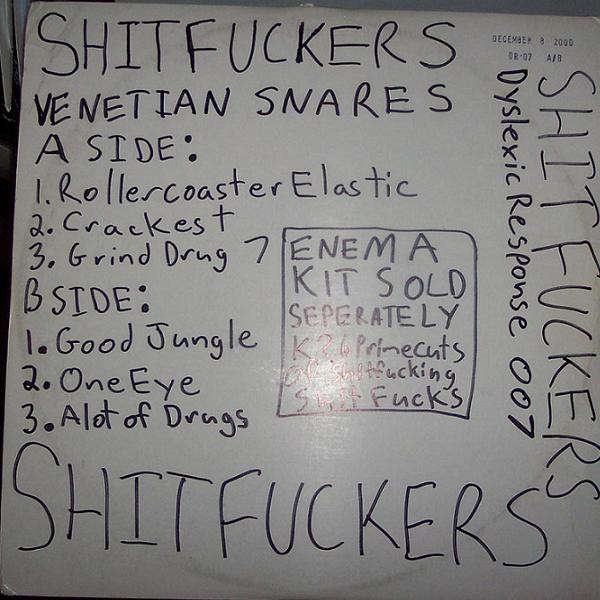 SHITFUCKERS
DECEMBER 8 2000
DR-07 A/B
VENETIAN SNARES
A SIDE:
1. Rollercoaster Elastic
2. Crackest
3. Grind Drug 7
B SIDE:
1. Good Jungle
2. One Eye
3. Alot of Drugs
ENEMA
KIT SOLD
SEPERATELY
Primecuts
OF Shitfucking
Shit Fucks
SHITFUCKERS
Dyslexic Response 007
SHITFUCKERS